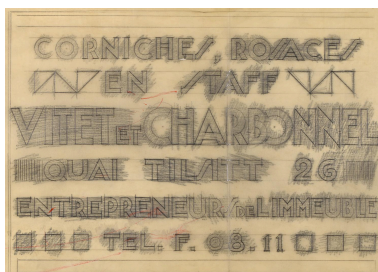 CORNICHES, ROSACES
EN STAFF
VITET ET CHARBONNEL
QUAI TILSITT 26
ENTREPRENEUR DE L'IMMEUBLE
TEL. F. 08.11